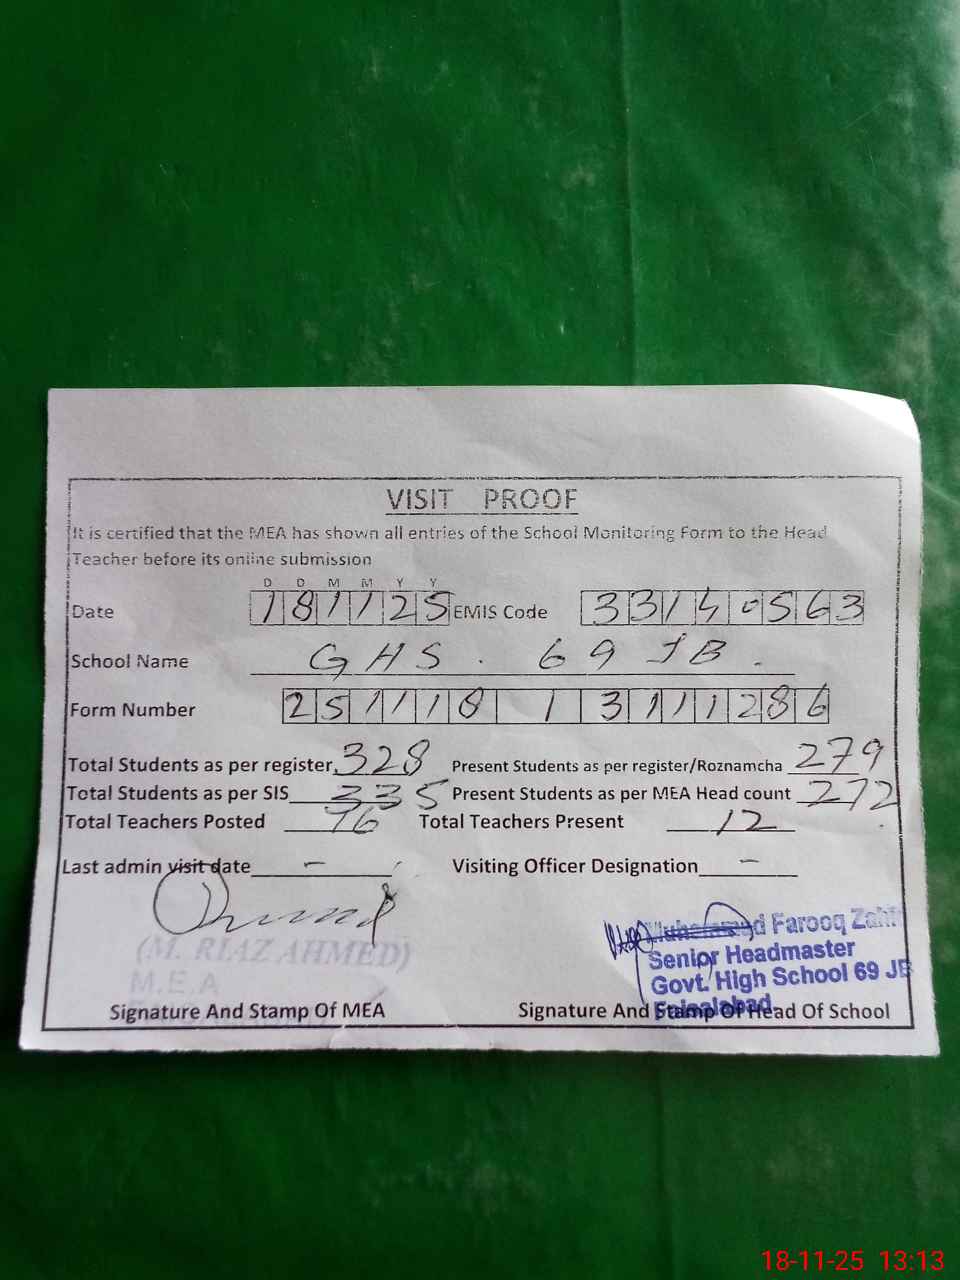 VISIT PROOF
It is certified that the MEA has shown all entries of the School Monitoring Form to the Head
Teacher before its online submission
D D M M Y Y
Date 181125 EMIS Code 33140563
School Name GHS. 69 JB.
Form Number 251118 1 3111286
Total Students as per register 328 Present Students as per register/Roznamcha 279
Total Students as per SIS 335 Present Students as per MEA Head count 272
Total Teachers Posted 16 Total Teachers Present 12
Last admin visit date - Visiting Officer Designation -
(M. RIAZ AHMED)
M.E.A
Muhammad Farooq Zahid
Senior Headmaster
Govt. High School 69 JB
Faisalabad.
Signature And Stamp Of MEA Signature And Stamp Of Head Of School
18-11-25 13:13